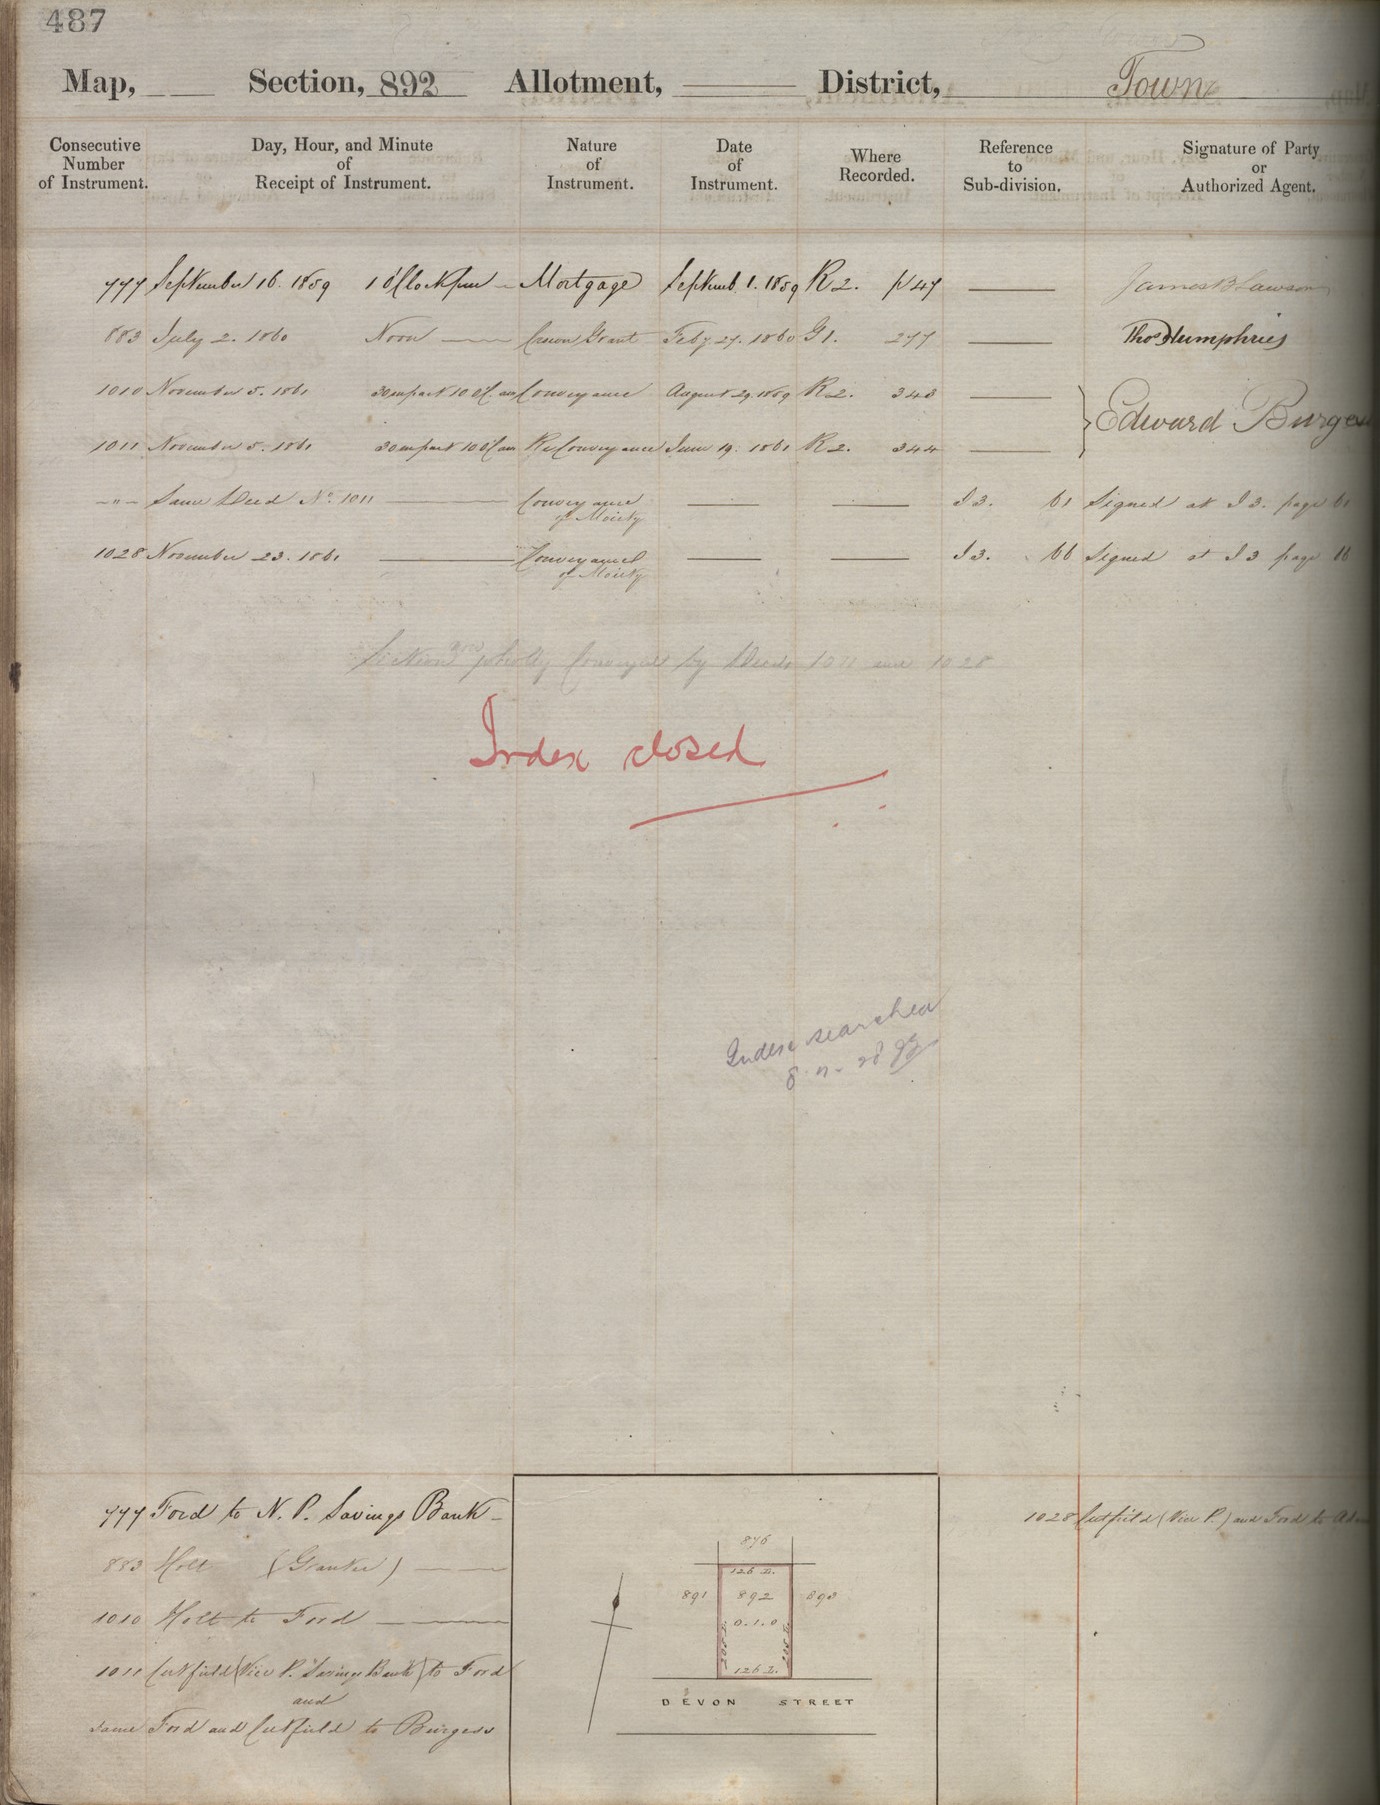 487
Map, Section, 892 Allotment, District, Town
Consecutive Number of Instrument. Day, Hour, and Minute of Receipt of Instrument. Nature of Instrument. Date of Instrument. Where Recorded. Reference to Sub-division. Signature of Party or Authorized Agent.
777 September 16. 1859 1 O'Clock pm Mortgage Septemb. 1. 1859 R 2. p 47 James B Lawson
883 July 2. 1860 Noon Crown Grant Feby 27. 1860 G 1. 277 Thos Humphries
1010 November 5. 1861 30 m past 10 O'C. am Conveyance August 29. 1859 R 2. 343 Edward Burgess
1011 November 5. 1861 30 m past 10 O'C am ReConveyance June 19. 1861 R 2. 344
-"- Same Deed No. 1011 Conveyance of Moiety I 3. 61 Signed at I 3. page 61
1028 November 23. 1861 Conveyance of Moiety I 3. 66 Signed at I 3 page 66
Section 892 wholly Conveyed by Deeds 1011 and 1028
Index closed
Index searched
777 Ford to N. P. Savings Bank 1028 Cutfield (Vice P.) and Ford to
883 Holt (Grantee)
1010 Holt to Ford
1011 Cutfield (Vice P. Savings Bank) to Ford
and
same Ford and Cutfield to Burgess
876
126 L.
891 892 893
0.1.0
126 L.
DEVON STREET